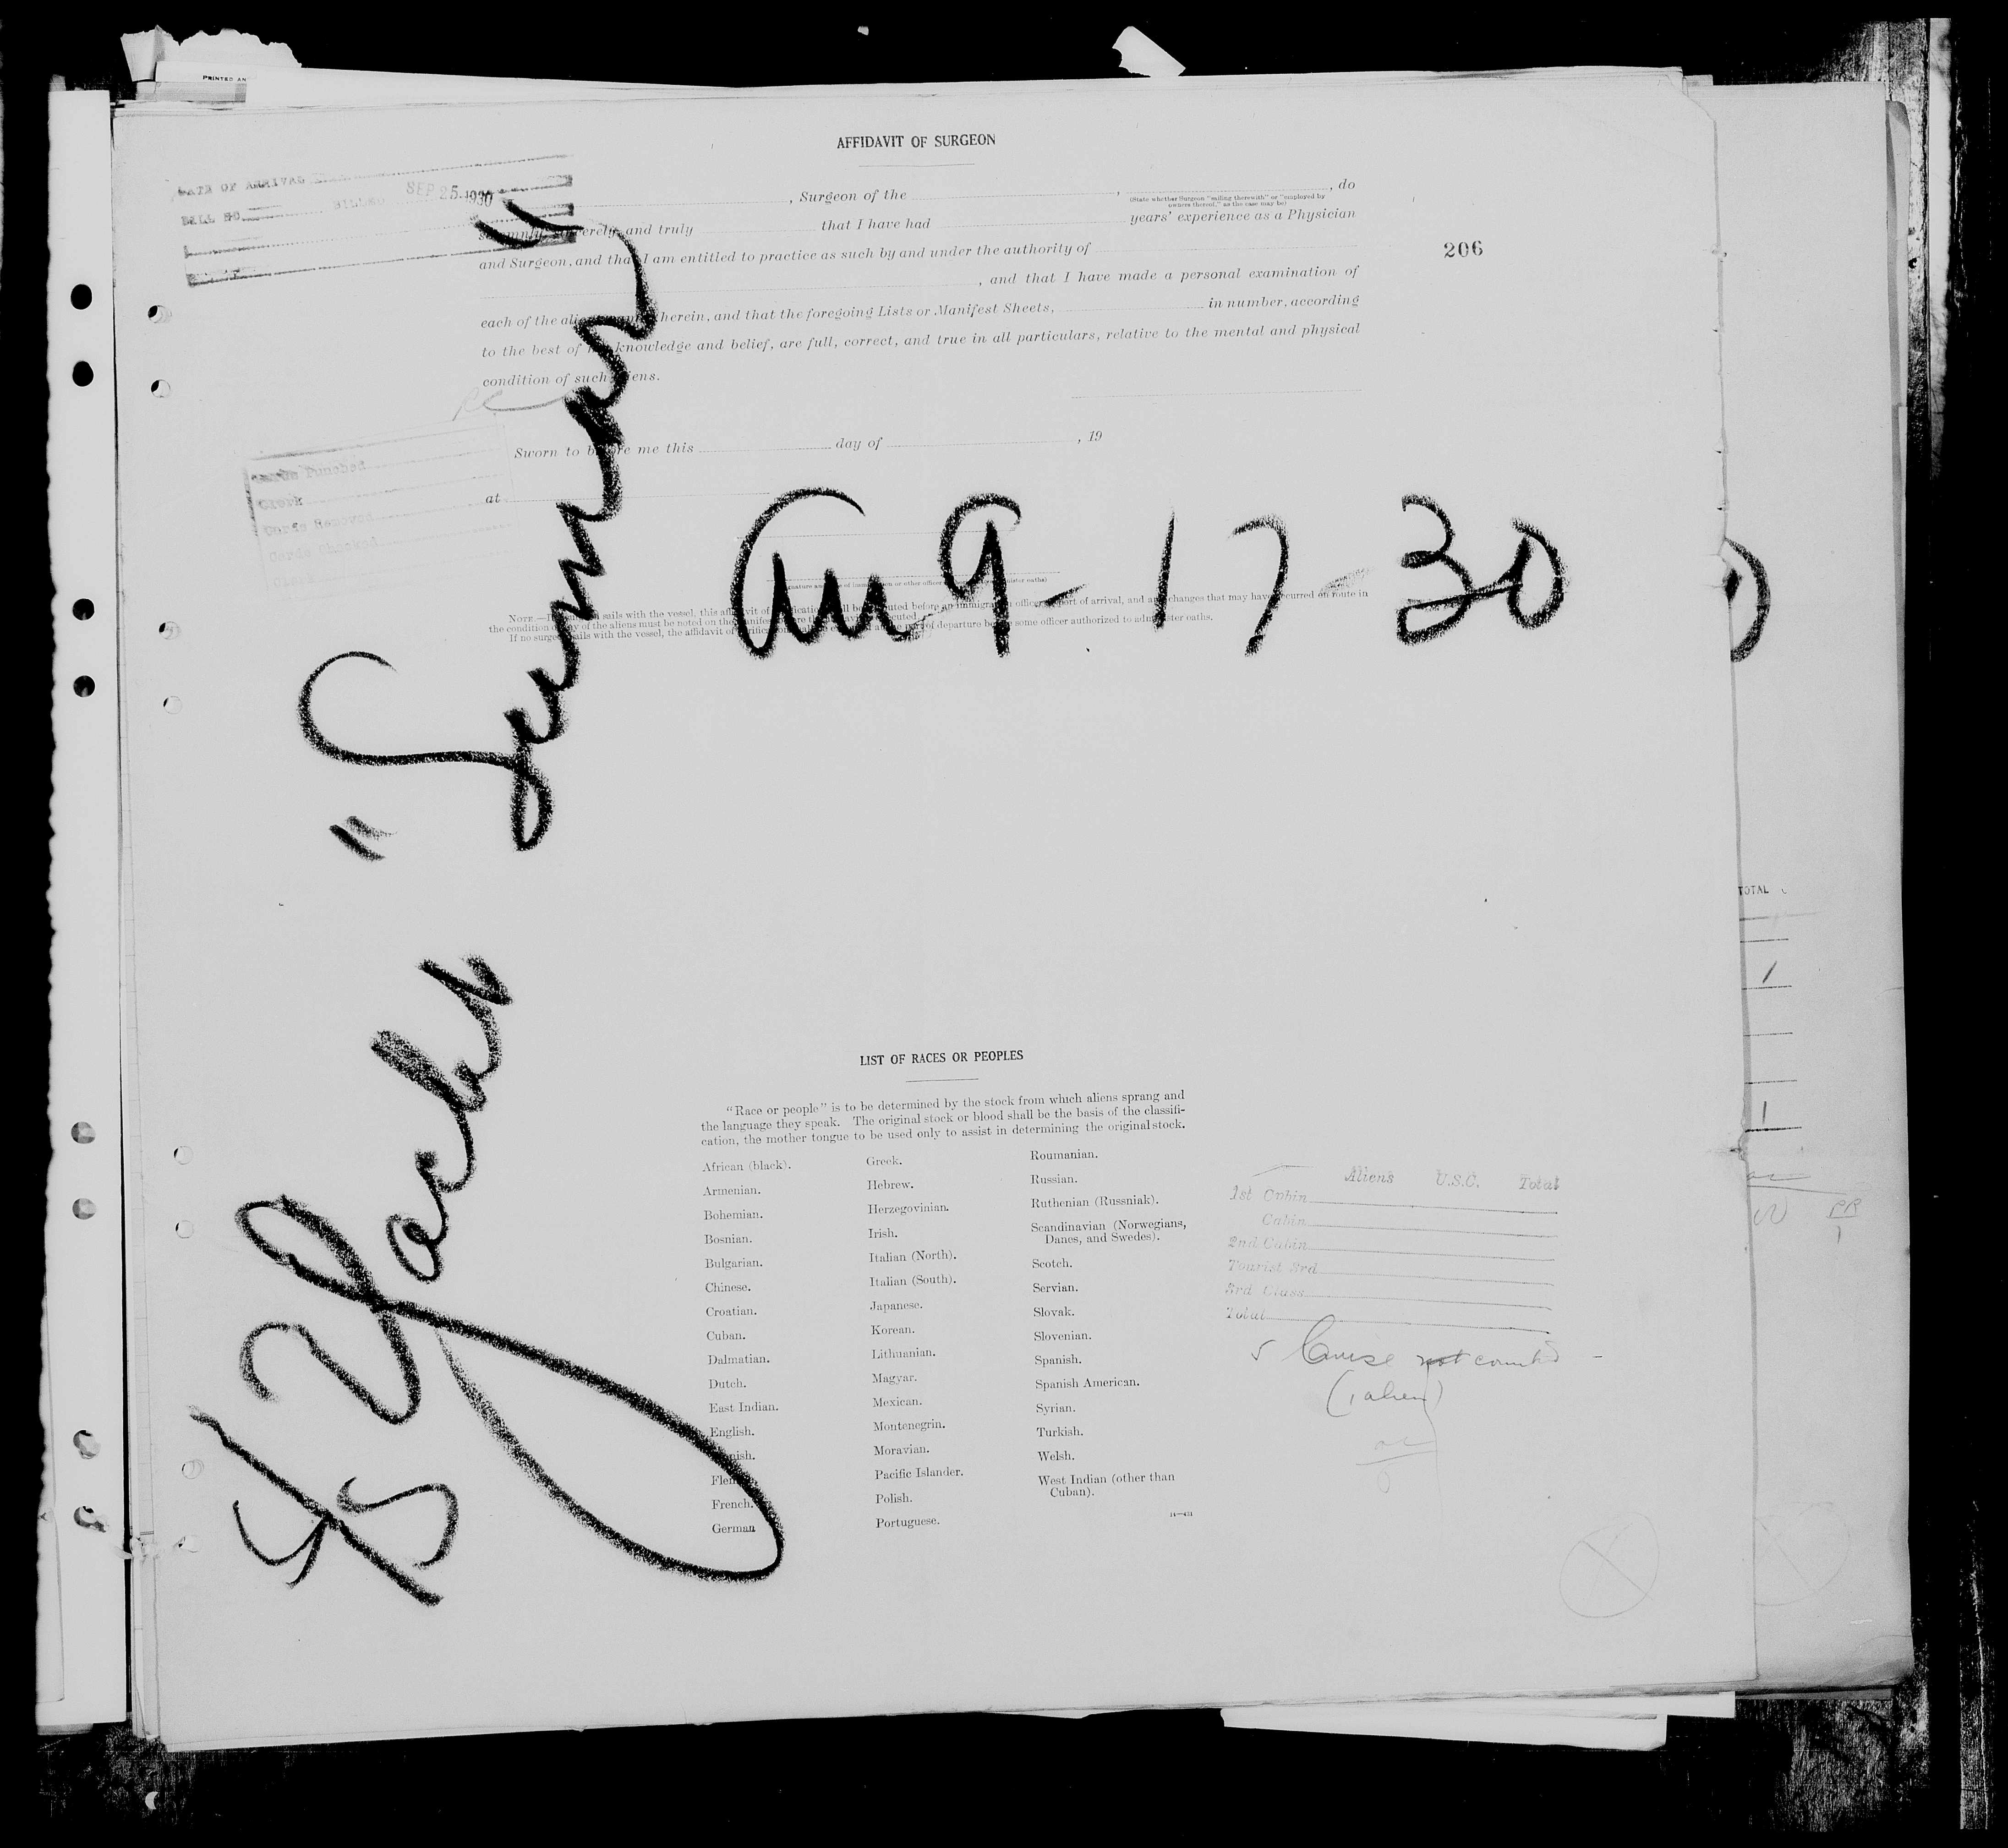 PRINTED AN
AFFIDAVIT OF SURGEON
DATE OF ARRIVAL
BILL NO. BILLED SEP 25 1930
, Surgeon of the , , do
(State whether Surgeon "sailing therewith" or "employed by
owners thereof," as the case may be)
solemnly, sincerely, and truly that I have had years' experience as a Physician
and Surgeon, and that I am entitled to practice as such by and under the authority of
206
, and that I have made a personal examination of
each of the herein, and that the foregoing Lists or Manifest Sheets, in number, according
to the best of knowledge and belief, are full, correct, and true in all particulars, relative to the mental and physical
condition of such aliens.
Sworn to before me this day of , 19
at
Cards Punched
Clerk
Cards Removed
Cards Checked
Au 9 - 17 30
NOTE.— sails with the vessel, this affidavit of before an immigration officer port of arrival, and any changes that may have occurred en route in
the condition of any of the aliens must be noted on the manifest
If no surgeon sails with the vessel, the affidavit of departure before some officer authorized to administer oaths.
SS Yacht " "
TOTAL
1
1
LIST OF RACES OR PEOPLES
"Race or people" is to be determined by the stock from which aliens sprang and
the language they speak. The original stock or blood shall be the basis of the classifi-
cation, the mother tongue to be used only to assist in determining the original stock.
African (black).
Armenian.
Bohemian.
Bosnian.
Bulgarian.
Chinese.
Croatian.
Cuban.
Dalmatian.
Dutch.
East Indian.
English.
Finnish.
Flemish.
French.
German
Greek.
Hebrew.
Herzegovinian.
Irish.
Italian (North).
Italian (South).
Japanese.
Korean.
Lithuanian.
Magyar.
Mexican.
Montenegrin.
Moravian.
Pacific Islander.
Polish.
Portuguese.
Roumanian.
Russian.
Ruthenian (Russniak).
Scandinavian (Norwegians,
Danes, and Swedes).
Scotch.
Servian.
Slovak.
Slovenian.
Spanish.
Spanish American.
Syrian.
Turkish.
Welsh.
West Indian (other than
Cuban).
Aliens U.S.C. Total
1st Cabin
Cabin
2nd Cabin
Tourist 3rd
3rd Class
Total
Cruise not counted -
(1 alien)
PR
1